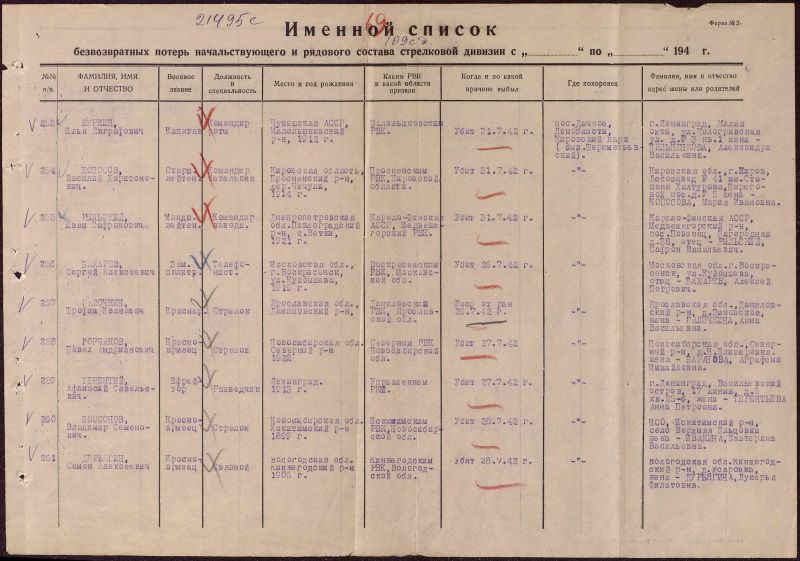 21495с
Именной список
69
109сд
Форма №2.
безвозвратных потерь начальствующего и рядового состава стрелковой дивизии с „ “ по „ “ 194 г.
№№ п/п.
ФАМИЛИЯ, ИМЯ И ОТЧЕСТВО
Военное звание
Должность и специальность
Место и год рождения
Каким РВК и какой области призван
Когда и по какой причине выбыл
Где похоронен
Фамилия, имя и отчество адрес жены или родителей
253 ШУРКИН, Илья Евграфович
Капитан
Командир роты
Чувашская АССР, Малояльчиковский р-н, 1912 г.
РВК.
Убит 31.7.42 г.
пос.Дачное, Ленобласти, Кировский парк (быв.Шереметьевский).
г.Ленинград, Малая Охта, ул. кв.1 жена - Александра Васильевна.
254 КОПОСОВ, Василий Харитонович.
Старш. лейтен.
Командир батальона
Кировская область, р-н, дер.Чечули, 1914 г.
РВК,Кировской области.
Убит 31.7.42 г.
-"-
Кировская обл.,г.Киров, Лесозавод № 41 им.Степана Халтурина, пос.д.№ 5 жена - КОПОСОВА, Мария Ивановна.
255 РЫЛЬСКИЙ, Иван Сафронович.
Младш. лейтен.
Командир взвода.
Днепропетровская обл.Павлоградский р-н, с.Ветки, 1921 г.
Карело-Финская АССР, Медвежегорский РВК.
Убит 31.7.42 г.
-"-
Карело-Финская АССР, Медвежегорский р-н, пос.Повенец, Загородная д.38, отец - РЫЛЬСКИЙ, Сафрон Васильевич.
256 БАХАРЕВ, Сергей Алексеевич
Зам. политр.
Телефонист.
Московская обл., г.Воскресенск, ул.Куйбышева, 1919 г.
Воскресенским РВК, Московской обл.
Убит 26.7.42 г.
-"-
Московская обл.г.Воскресенск, ул.Куйбышева, отец - БАХАРЕВ, Алексей Петрович.
257 ГАЛОЧКИН, Трофим Иванович
Краснар.
Стрелок
Ярославская обл., Даниловский р-н,
Даниловский РВК, Ярославской обл.
Умер от ран 26.7.42 г.
-"-
Ярославская обл.,Даниловский р-н, жена - ГАЛОЧКИНА, Анна Васильевна.
258 Павел Андрианович
Красноармеец
Стрелок
Новосибирская обл. Северный р-н 1922
Северным РВК Новосибирской обл.
Убит 27.7.42
-"-
Новосибирская обл.,Северный р-н, жена - БАРАНОВА, Аграфена Михайловна.
259 ТЕРЕНТИЙ, Афанасий Савельевич.
Ефрейтор
Разведчик
Ленинград. 1913 г.
РВК.
Убит 27.7.42 г.
-"-
г.Ленинград, Васильевский остров, 17 линия, жена - ТЕРЕНТЬЕВА Анна Петровна.
260 БЕССОНОВ, Владимир Семенович.
Красноармеец
Стрелок
Новосибирская обл. Искитимский р-н 1899 г.
Искитимским РВК,Новосибирской обл.
Убит 28.7.42 г.
-"-
НСО, Искитимский р-н, село Верхняя Ельцовка жена - ИВАКИНА,Екатерина Васильевна.
261 ДУРЬЯГИН, Семен Алексеевич
Красноармеец
Связной
Вологодская обл. р-н 1905 г.
РВК, Вологодской обл.
Убит 28.7.42 г.
-"-
Вологодская обл. р-н, жена - ДУРЬЯГИНА, Лукерья Филатовна.